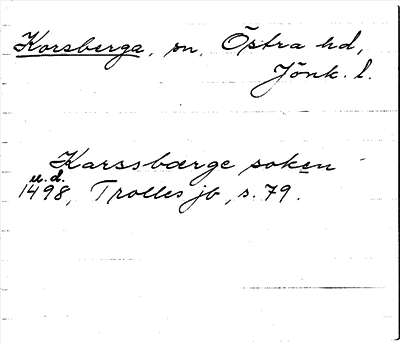 Korsberga, sn, Östra hd,
Jönk. l.
Karssbærge soken
u.d.
1498, Trolles jb, s. 79.